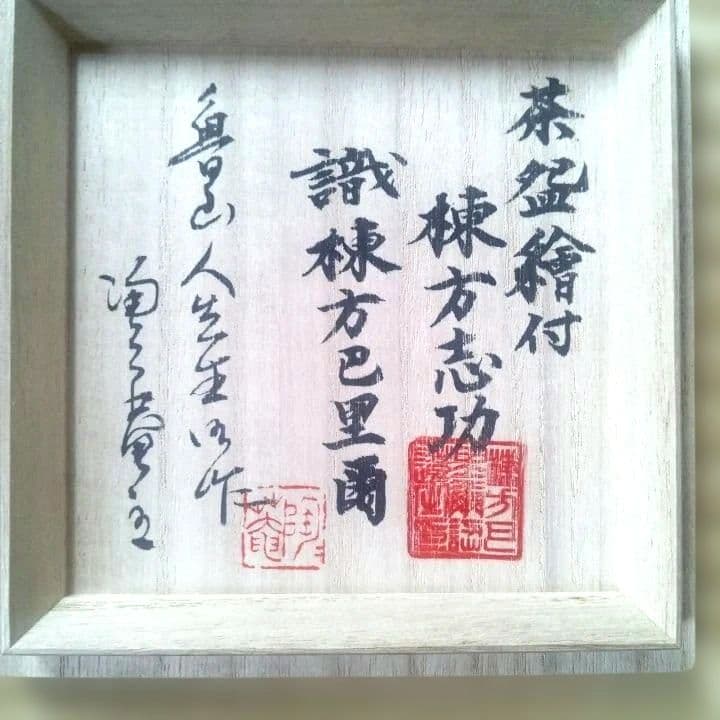 茶盌繪付
棟方志功
識棟方巴里爾
魯山人先生作
庵主